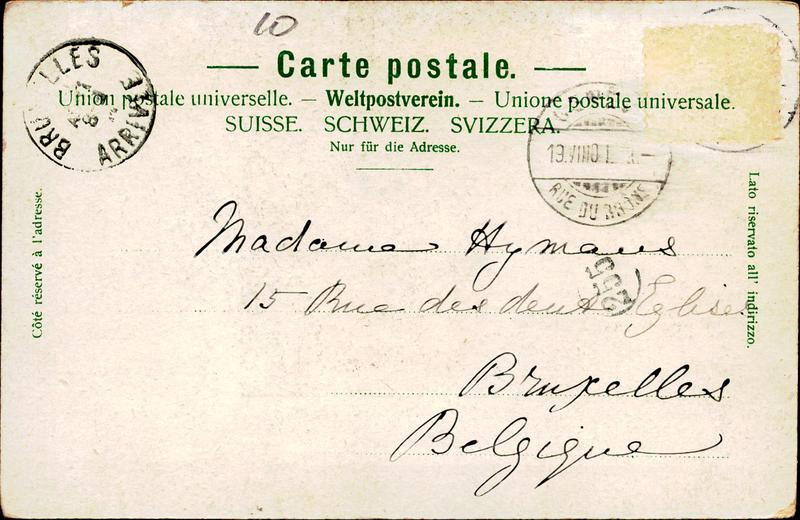 10
Carte postale.
Union postale universelle. — Weltpostverein. — Unione postale universale.
SUISSE. SCHWEIZ. SVIZZERA.
Nur für die Adresse.
BRUXELLES
ARRIVÉE
RUE DU RHÔNE
Côté réservé à l'adresse.
Lato riservato all' indirizzo.
Madame Hymans
255
15 Rue des deux Eglises
Bruxelles
Belgique